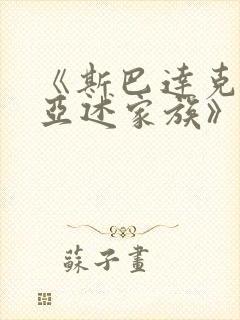 《斯巴達克
亞述家族》
蘇子畫